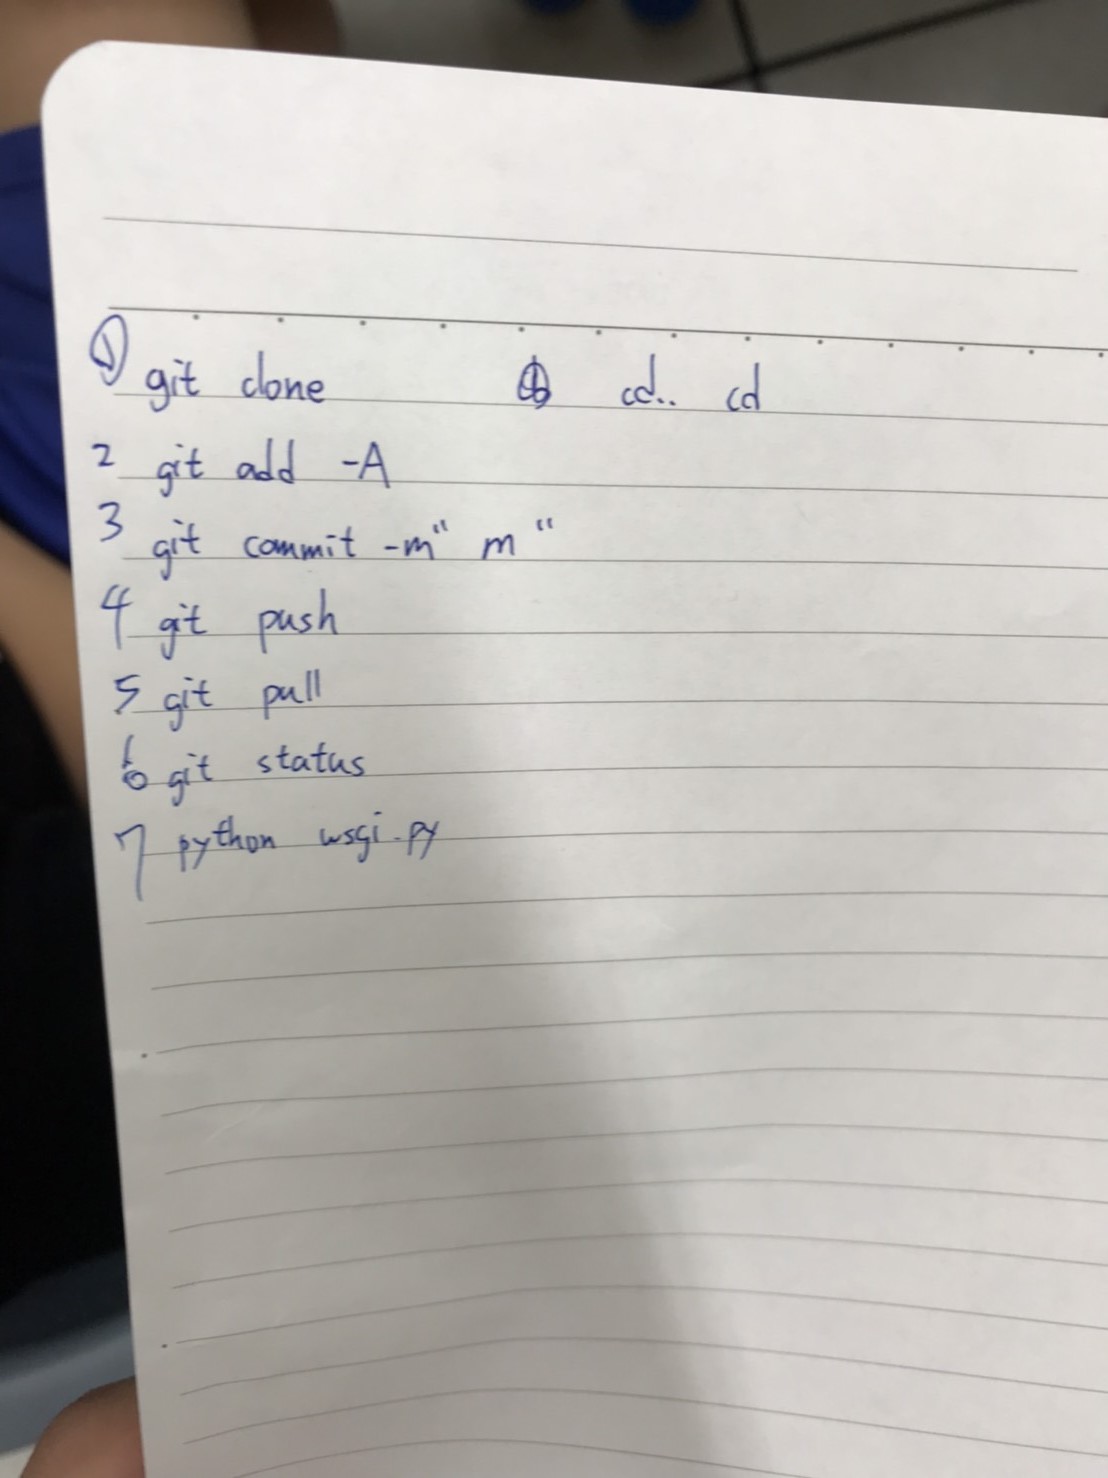 ① git clone ① cd.. cd
2 git add -A
3 git commit -m" m "
4 git push
5 git pull
6 git status
7 python wsgi.py